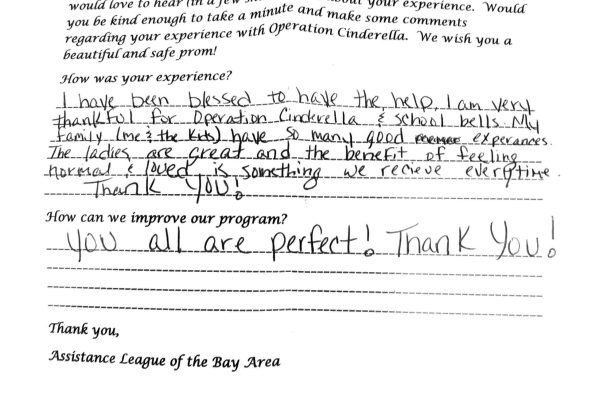 would love to hear (in a few your experience. Would
you be kind enough to take a minute and make some comments
regarding your experience with Operation Cinderella. We wish you a
beautiful and safe prom!
How was your experience?
I have been blessed to have the help. I am very
thankful for Operation Cinderella & school bells. My
family (me & the kids) have so many good experances.
The ladies are great and the benefit of feeling
normal & loved is something we recieve everytime.
Thank you!
How can we improve our program?
You all are perfect! Thank You!
Thank you,
Assistance League of the Bay Area